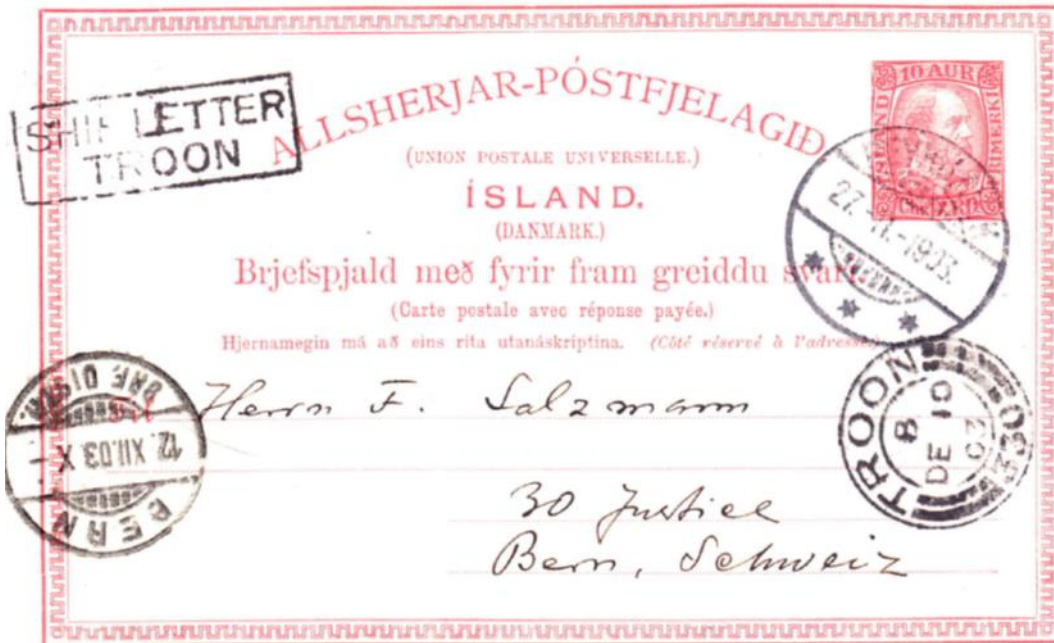 SHIP LETTER
TROON
ALLSHERJAR-PÓSTFJELAGIÐ
(UNION POSTALE UNIVERSELLE.)
ÍSLAND.
(DANMARK.)
Brjefspjald með fyrir fram greiddu svari.
(Carte postale avec réponse payée.)
Hjernamegin má að eins rita utanáskriptina. (Côté réservé à l'adresse.)
10 AUR
ÍSLAND
FRÍMERKI
27.-11.-1903.
Herrn F. Salzmann
30 Justice
Bern, Schweiz
BERN
12. XII.03.X-
TROON
8
DE 10
03